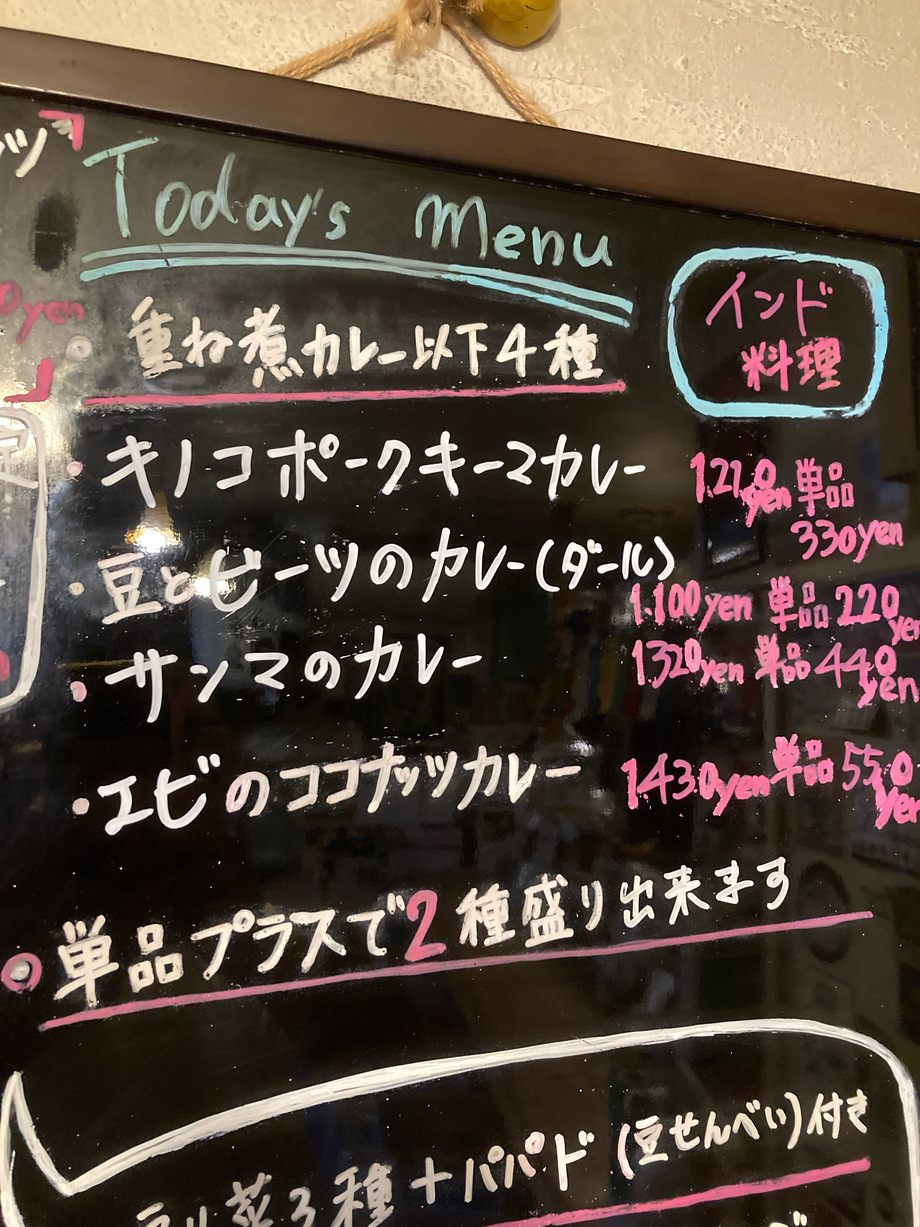 Today's Menu
インド
料理
重ね煮カレー以下4種
・キノコポークキーマカレー 1210yen 単品
330yen
・豆とビーツのカレー(ダール)
1.100yen 単品 220yen
・サンマのカレー 1320yen 単品 440yen
・エビのココナッツカレー 1430yen 単品 550yen
単品プラスで2種盛り出来ます
菜3種+パパド(豆せんべい)付き